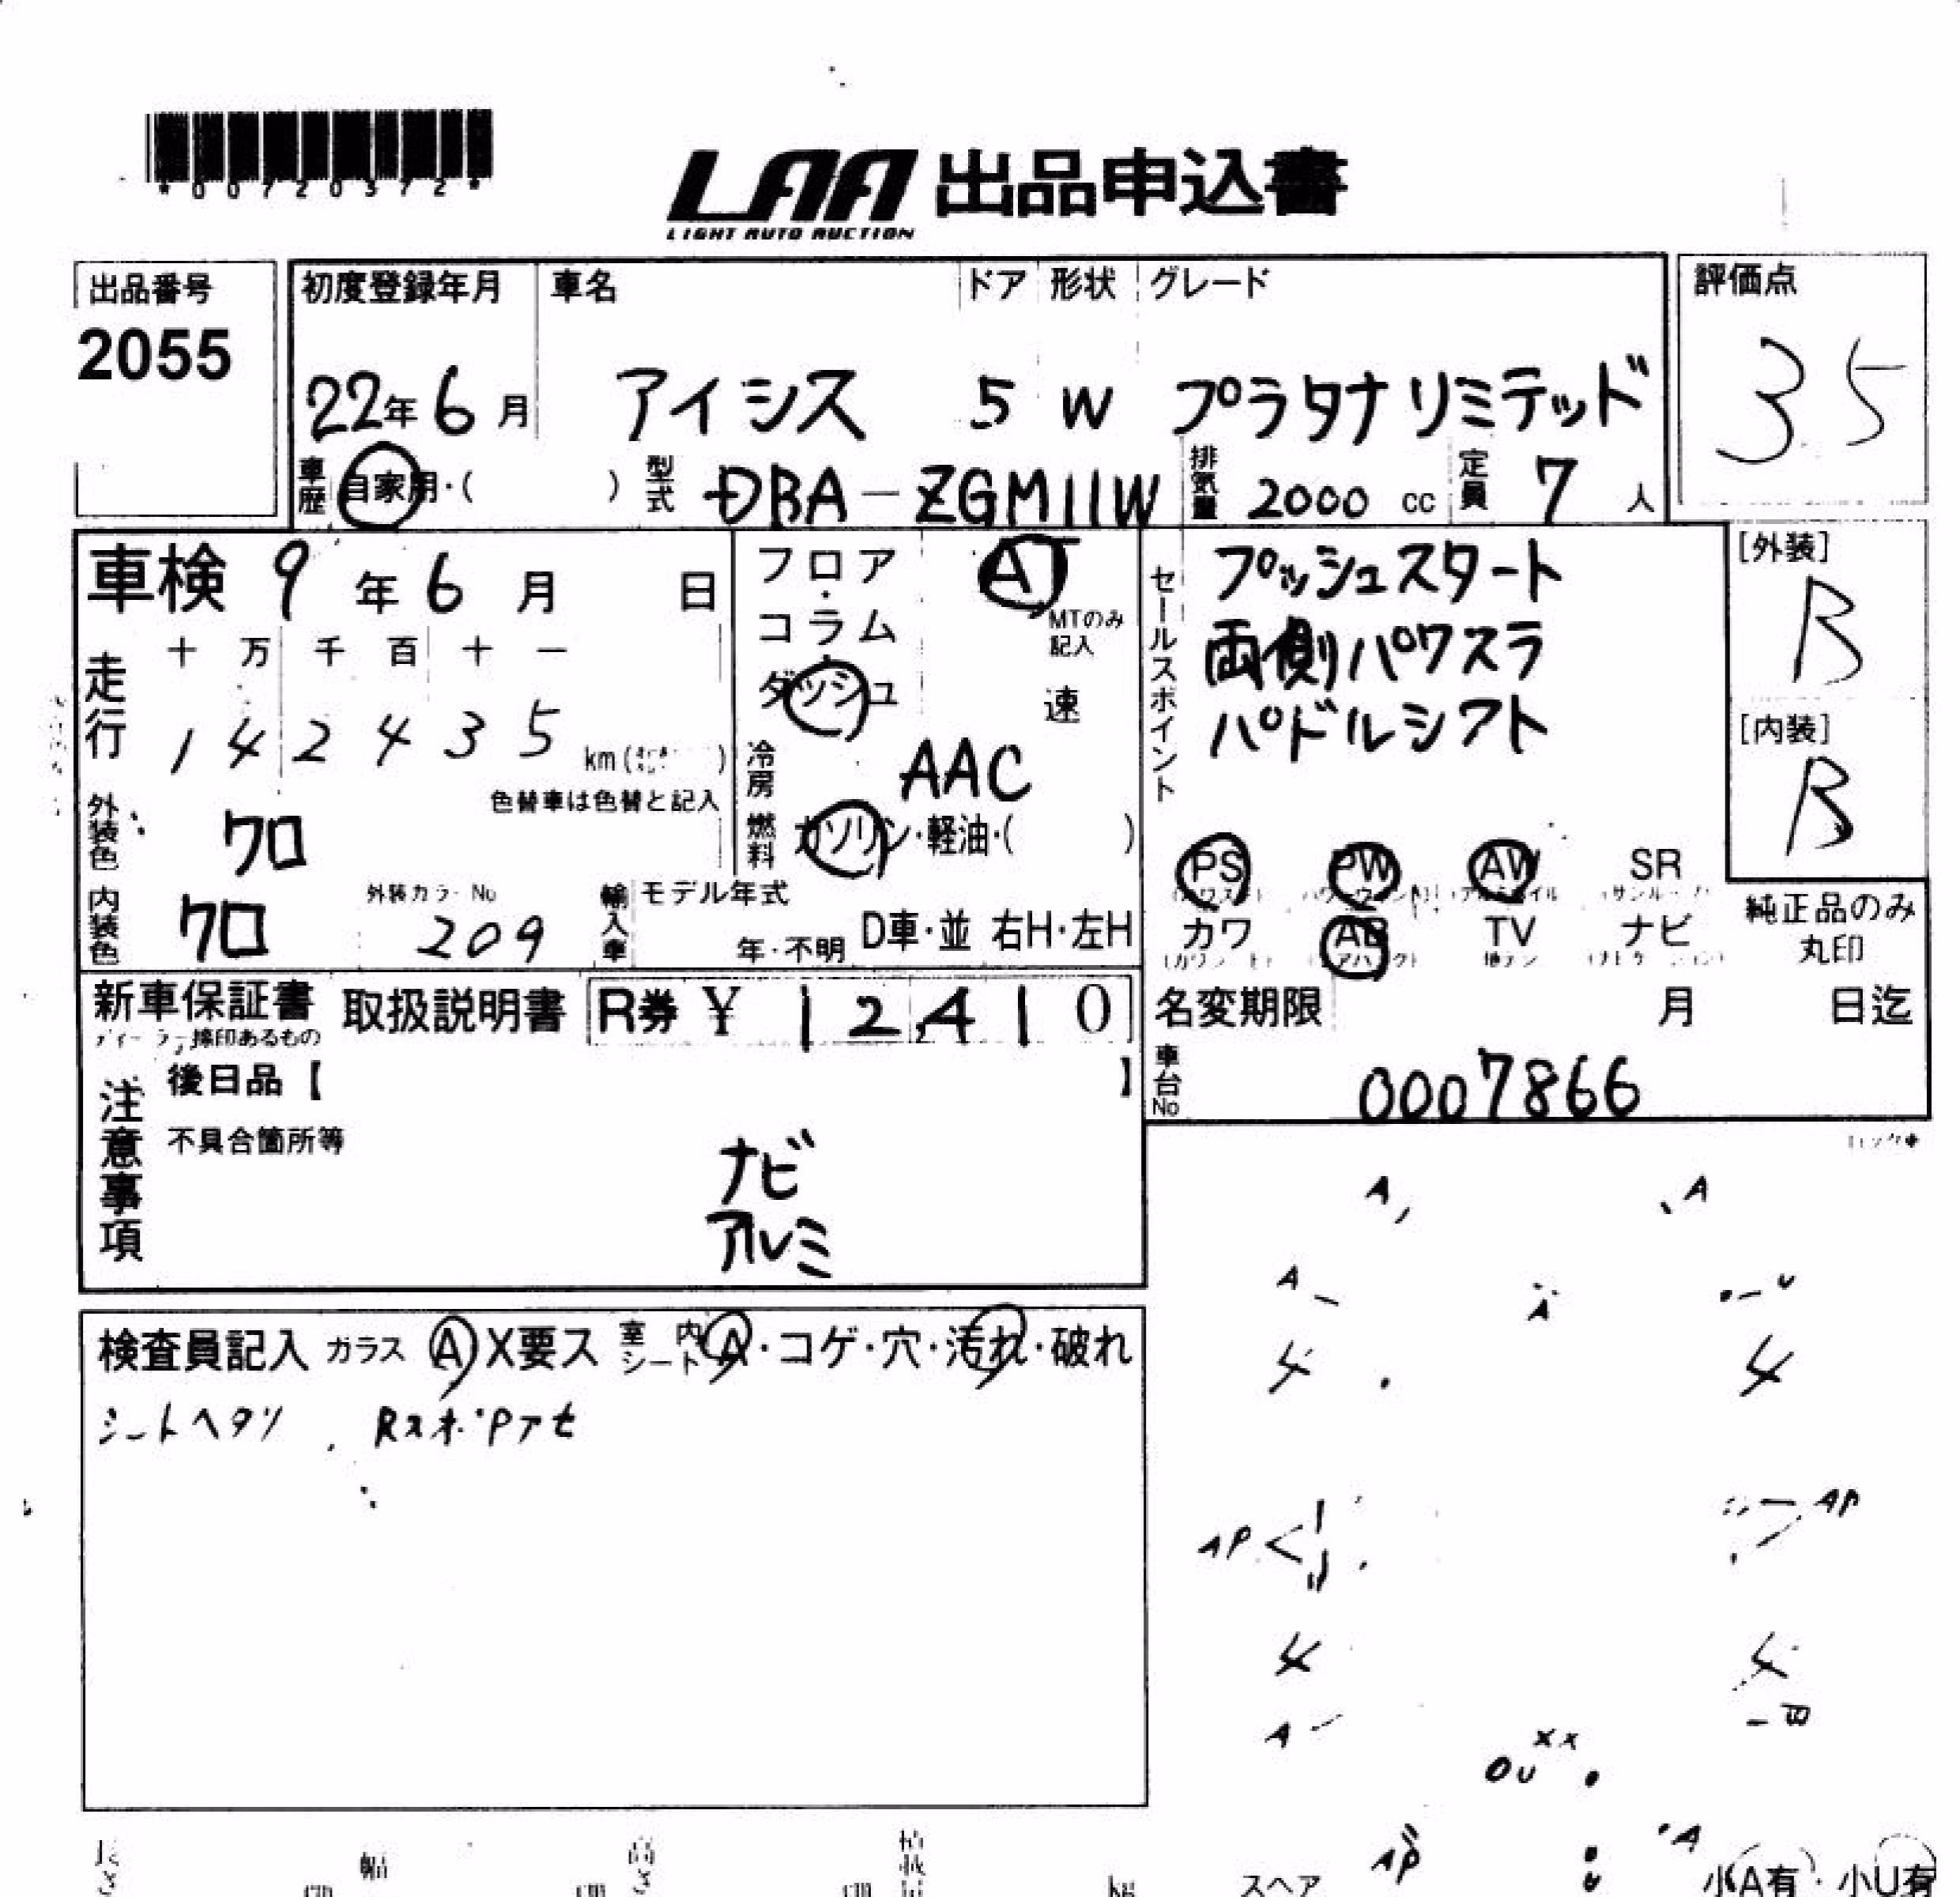 *00720572*
LAA 出品申込書
LIGHT AUTO AUCTION
出品番号
2055
初度登録年月 車名 ドア 形状 グレード
22年6月 アイシス 5 W プラタナリミテッド
評価点
35
車歴 自家用・( ) 型式 DBA-ZGM11W 排気量 2000 cc 定員 7人
車検 9年6月 日
走行 十万千百十一
142435 km
色替車は色替と記入
外装色 クロ
内装色 クロ 外装カラーNo 209
フロア・コラム・ダッシュ
AT
MTのみ記入
速
冷房 AAC
燃料 ガソリン・軽油・( )
輸入車 モデル年式
年・不明 D車・並 右H・左H
セールスポイント
プッシュスタート
両側パワスラ
パドルシフト
PS PW AW SR
カワ AB TV ナビ
[外装]
B
[内装]
B
純正品のみ
丸印
新車保証書 取扱説明書 R券 ¥ 12,410
後日品【 】
名変期限 月 日迄
車台No 0007866
注意事項
不具合箇所等
ナビ
アルミ
検査員記入 ガラス A X要ス 室内シート A・コゲ・穴・汚れ・破れ
シートヘタリ Rスポ・Pアセ
A A
A A U
4 4
AP AP
4 4
A B
XX
U
AP U A
長さ cm 幅 cm 高さ cm kg
スペア
小A有・小U有